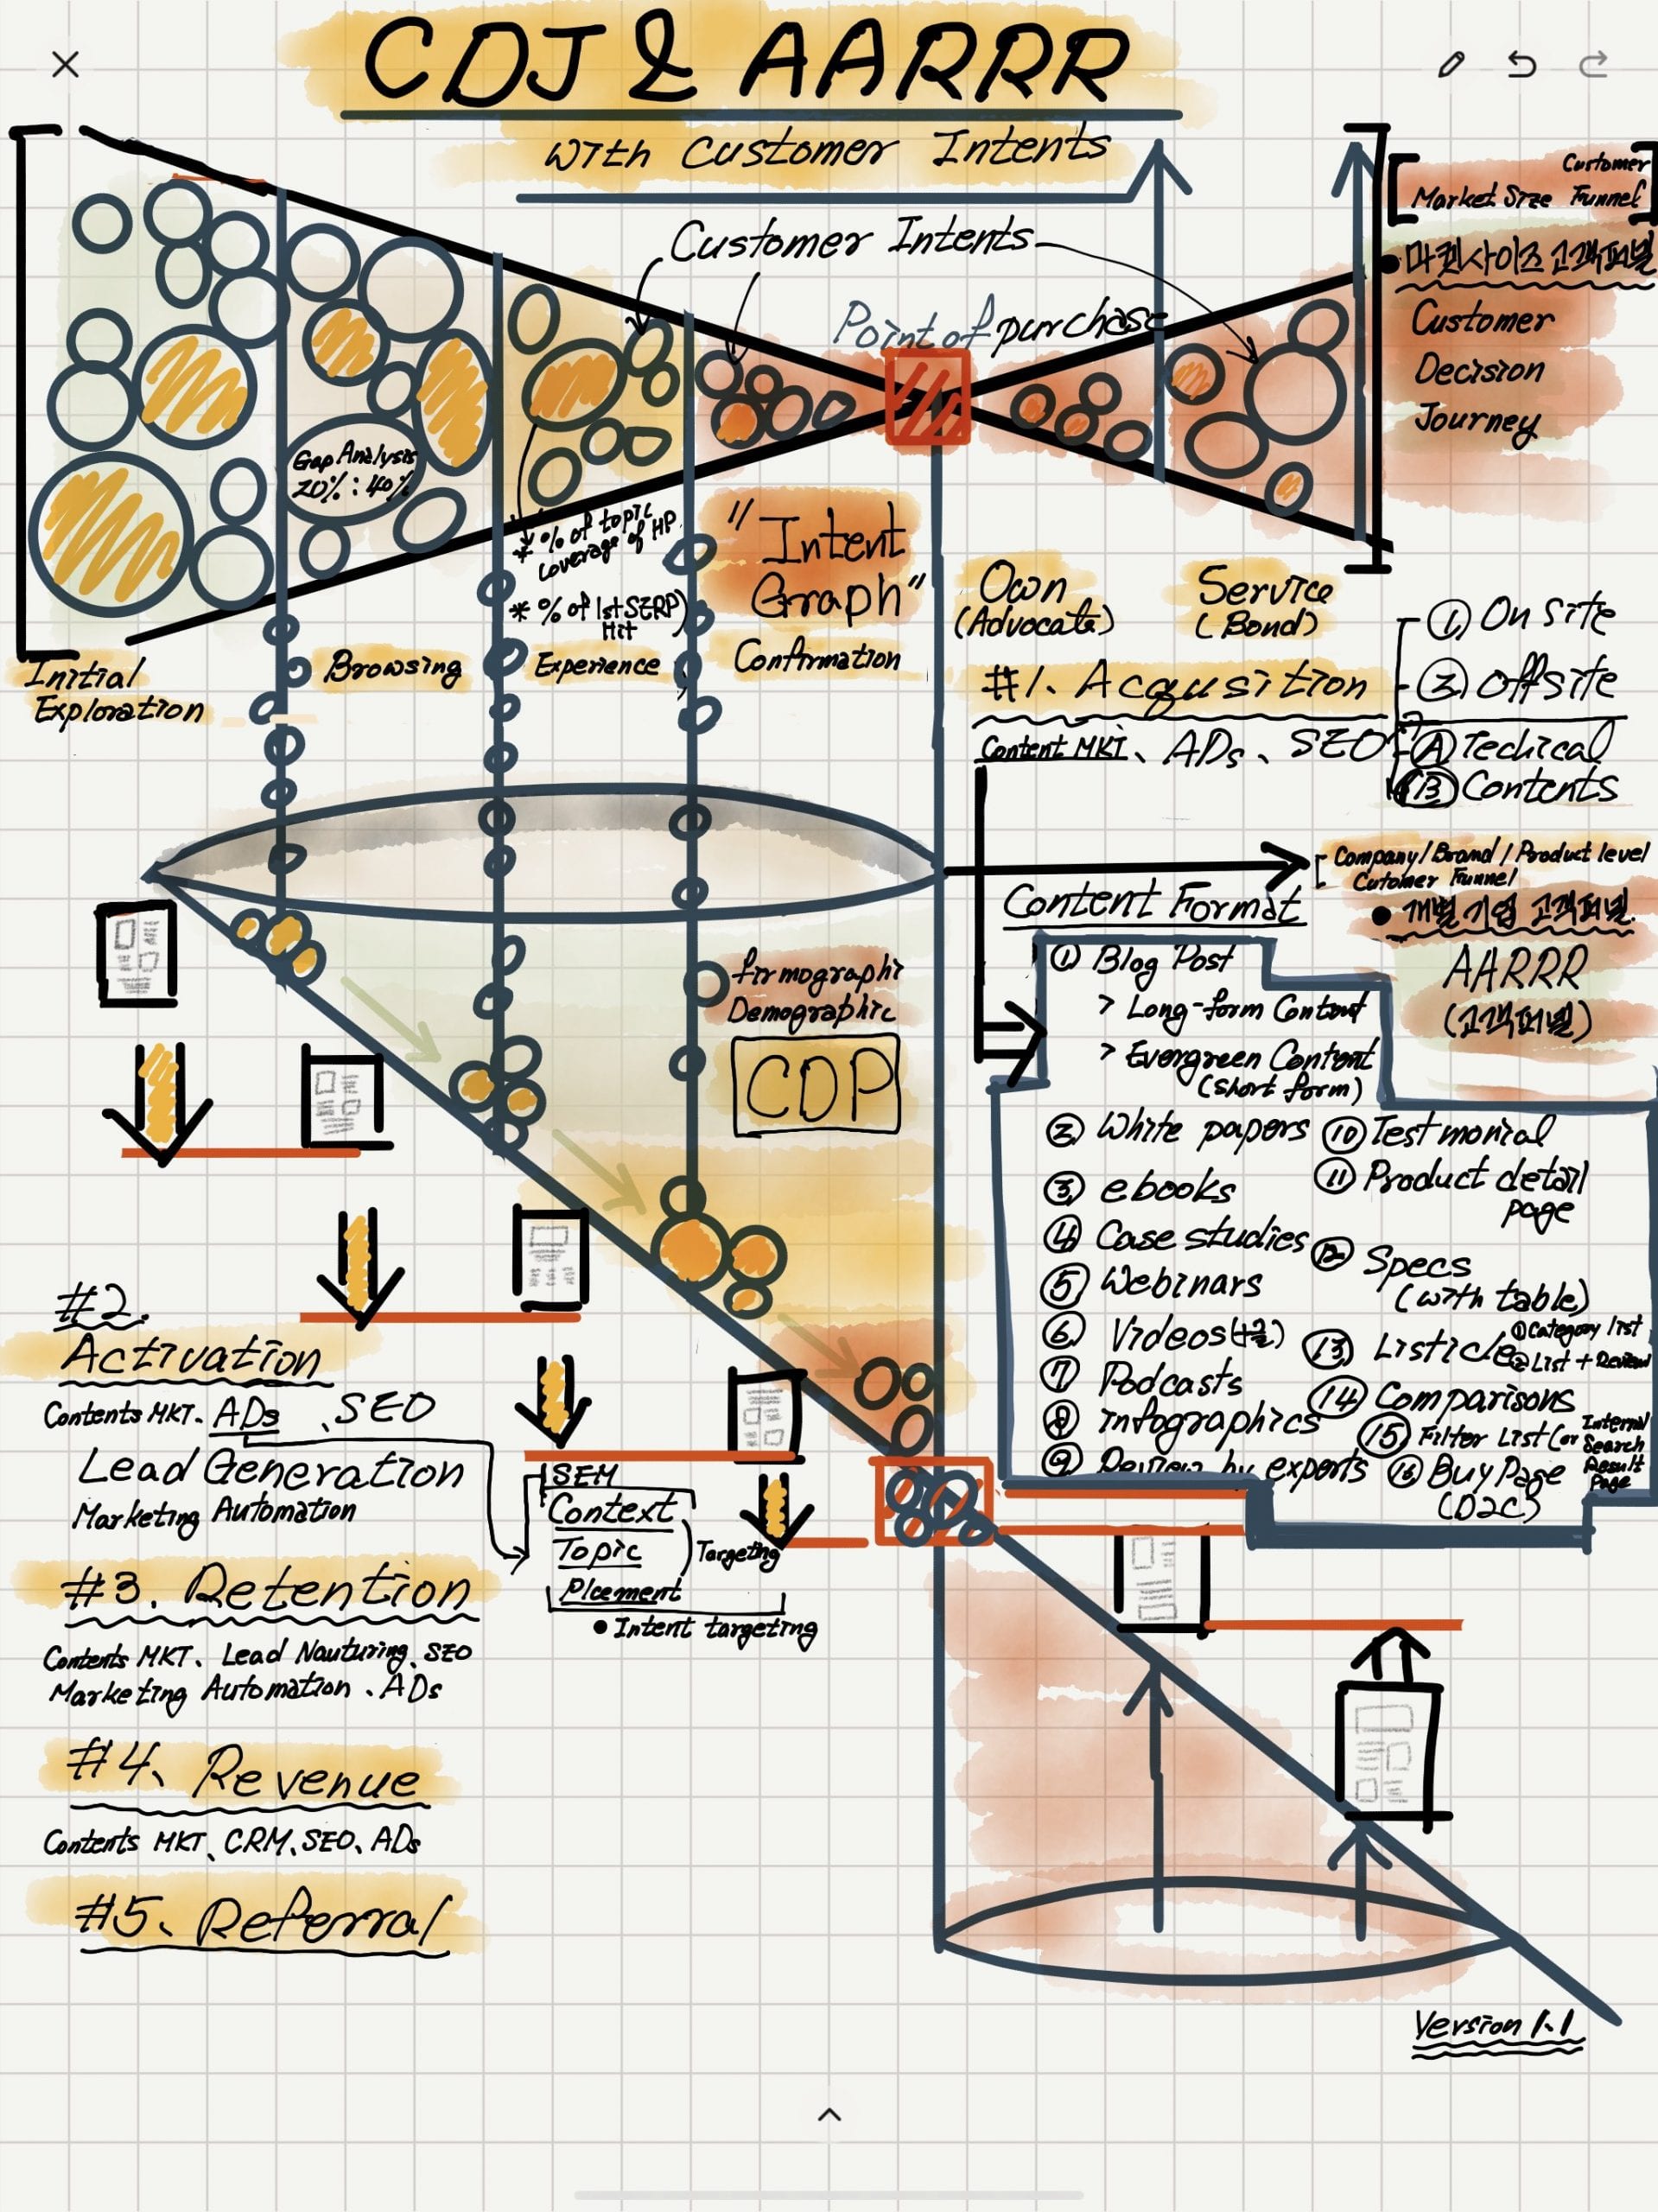 CDJ & AARRR
with Customer Intents
Customer Intents
Point of purchase
[Customer
Market Size Funnel]
• 마켓사이즈 고객퍼널
Customer
Decision
Journey
Gap Analysis
20% : 40%
* % of topic
coverage of HP
* % of 1st SERP
Hit
"Intent
Graph"
Initial
Exploration
Browsing
Experience
Confirmation
Own
(Advocate)
Service
(Bond)
#1. Acqusition
Content MKT、ADs、SEO
① On Site
② Offsite
Ⓐ Techical
Ⓑ Contents
Company/Brand/Product level
Cutomer Funnel
• 개별기업 고객퍼널
AARRR
(고객퍼널)
firmographic
Demographic
CDP
Content Format
① Blog Post
> Long-form Content
> Evergreen Content
(short form)
② White papers
③ ebooks
④ Case studies
⑤ Webinars
⑥ Videos
⑦ Podcasts
⑧ Infographics
⑨ Review by experts
⑩ Testmonial
⑪ Product detail
page
⑫ Specs
(with table)
⑬ Listicle
① Category list
② List + Review
⑭ Comparisons
⑮ Filter List (or Internal
Search
Result
Page
⑯ Buy Page
(D2C)
#2.
Activation
Contents MKT. ADs、SEO
Lead Generation
Marketing Automation
SEM
Context
Topic
Plcement
Targeting
• Intent targeting
#3. Retention
Contents MKT、Lead Nauturing、SEO
Marketing Automation、ADs
#4、Revenue
Contents MKT、CRM、SEO、ADs
#5、Referral
Version 1.1